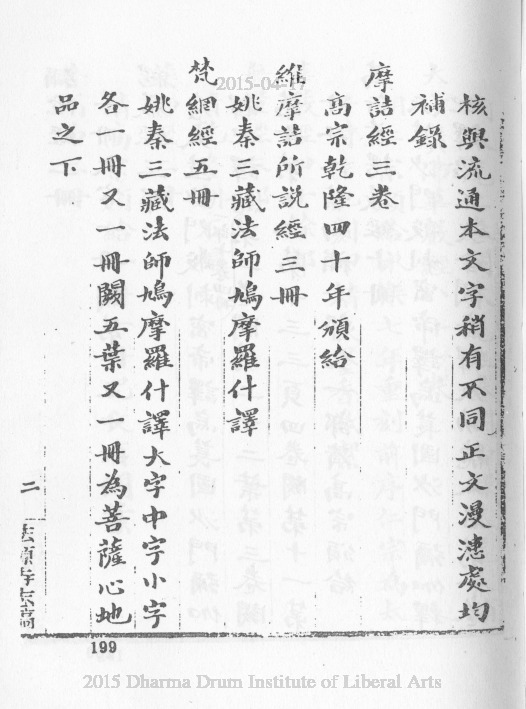 核與流通本文字稍有不同正文漫漶處均
補錄
摩詰經三卷
高宗乾隆四十年頒給
維摩詰所說經三冊
姚秦三藏法師鳩摩羅什譯
梵網經五冊
姚秦三藏法師鳩摩羅什譯大字中字小字
各一冊又一冊闕五葉又 冊為菩薩心地
品之下
二
法源寺志稿
199
2015-04-17
2015 Dharma Drum Institute of Liberal Arts